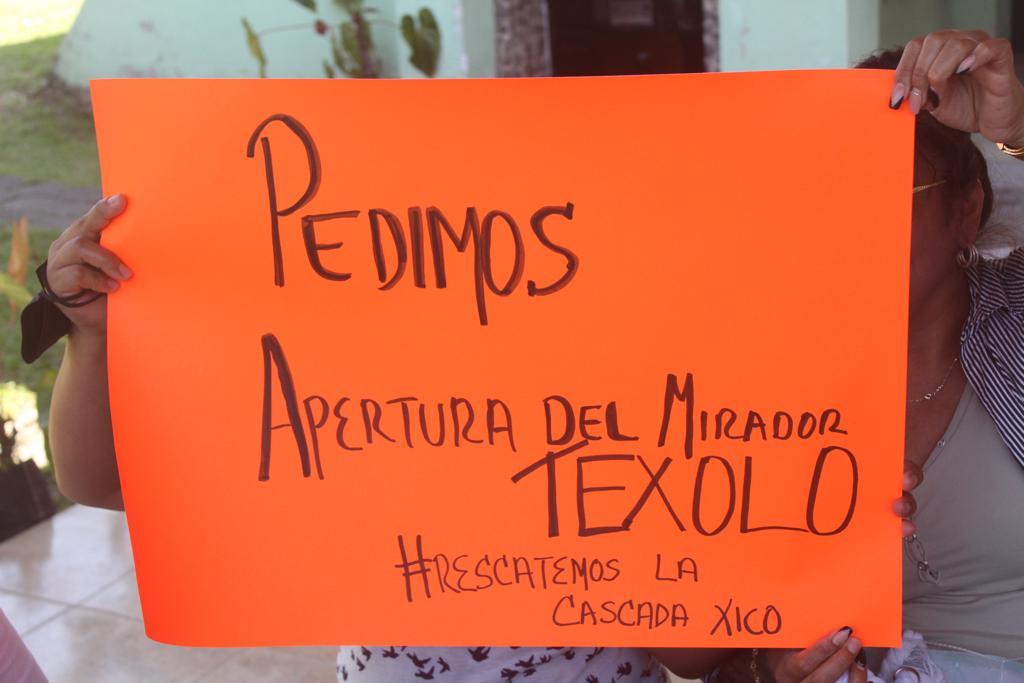 PEDIMOS
APERTURA DEL MIRADOR
TEXOLO
#RESCATEMOS LA
CASCADA XICO